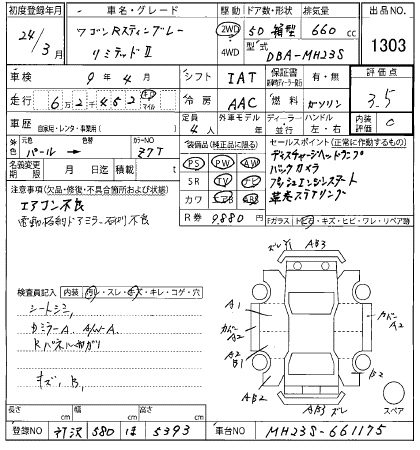 初度登録年月 車名・グレード 駆動 ドア数・形状 排気量 出品NO
24/3月 ワゴンRスティングレー 2WD 5D 箱型 660cc
リミテッドⅡ 4WD 型式 DBA-MH23S 1303
車検 9年4月 シフト IAT 保証書 有・無 評価点
走行 6万2千452 キロ マイル 冷房 AAC 燃料 ガソリン 3.5
車歴 自家用・レンタ・事業用( ) 定員 4人 外車モデル 年 ディーラー 並行 ハンドル 左・右 内装評価 C
外色 元色 パール→ 色替 カラーNO Z7T
装備品(純正品に限る) セールスポイント(正常に作動するもの)
名義変更期限 月 日迄 積載 t
PS PW AW ディスチャージヘッドランプ
SR TV ナビ バックカメラ
カワ エアB ABS プッシュエンジンスタート
革巻ステアリング
注意事項(欠品・修復・不具合箇所および状態)
エアコン不良
電動格納ドアミラー右側不良
R券 9,880円 Fガラス トビ石・キズ・ヒビ・ワレ・リペア跡
検査員記入 内装 汚レ・スレ・キズ・キレ・コゲ・穴
シートシミ
カミラーA. A/W-A
Rパネル曲がり
キズ, B,
ズレY1 AB3
A1
カドバー A2
A2 B1
AB2
カドバー A2
B2
AB3 ズレ
スペア
長さ cm 幅 cm 高さ cm
登録NO 所沢 580 ほ 5393 車台NO MH23S-661175